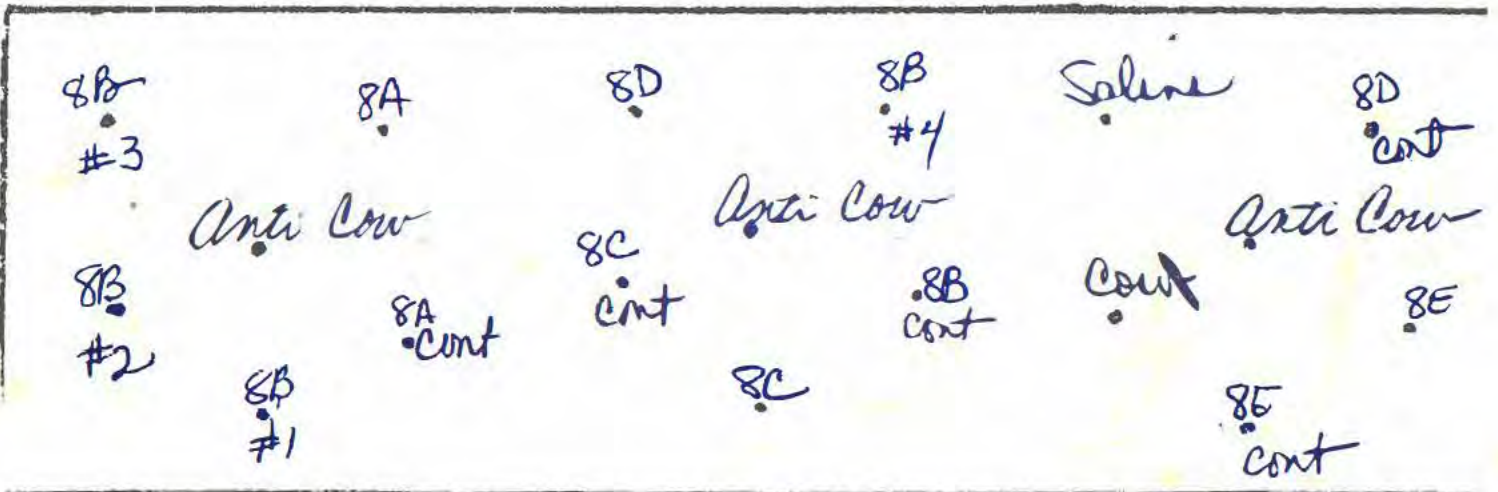 8B
#3
8A
8D
8B
#4
Saline
8D
cont
Anti Cow
Anti Cow
Anti Cow
8B
#2
8A
Cont
8C
Cont
8B
Cont
Cow
8E
8B
#1
8C
8E
cont